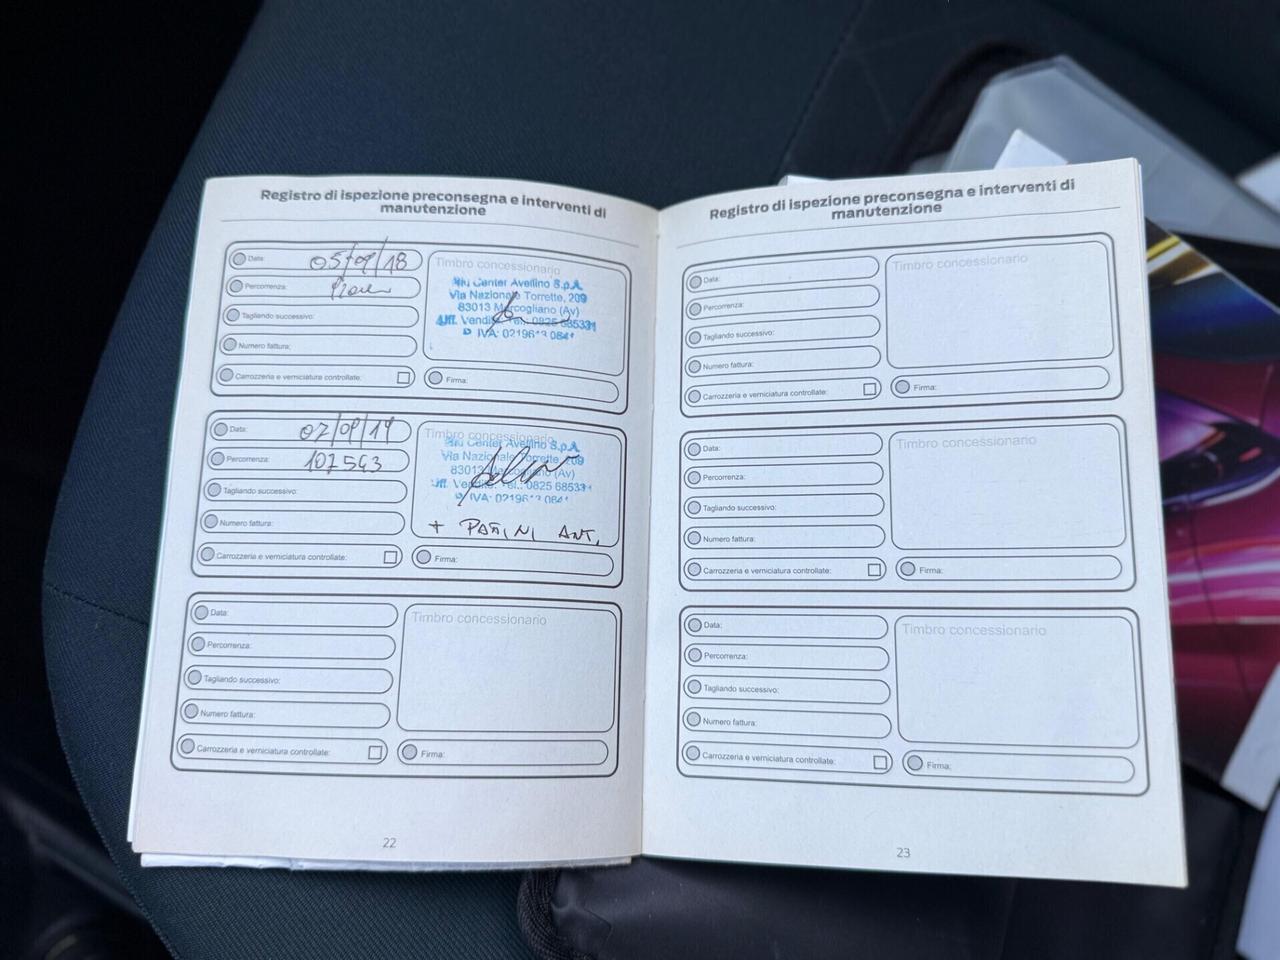 Registro di ispezione preconsegna e interventi di
manutenzione
Data: 05/09/18
Percorrenza:
Tagliando successivo:
Numero fattura:
Carrozzeria e verniciatura controllate:
Timbro concessionario
Center Avellino S.p.A
Via Nazionale Torrette, 209
83013 Mercogliano (Av)
Uff. Vendite Tel.: 0825 685331
IVA:
Firma:
Data: 07/09/19
Percorrenza: 107543
Tagliando successivo:
Numero fattura:
Carrozzeria e verniciatura controllate:
Timbro concessionario
Center Avellino S.p.A
Via Nazionale Torrette, 209
83013 Mercogliano (Av)
Uff. Vendite Tel.: 0825 68533
IVA:
+ ANT.
Firma:
Data:
Percorrenza:
Tagliando successivo:
Numero fattura:
Carrozzeria e verniciatura controllate:
Timbro concessionario
Firma:
22
Registro di ispezione preconsegna e interventi di
manutenzione
Data:
Percorrenza:
Tagliando successivo:
Numero fattura:
Carrozzeria e verniciatura controllate:
Timbro concessionario
Firma:
Data:
Percorrenza:
Tagliando successivo:
Numero fattura:
Carrozzeria e verniciatura controllate:
Timbro concessionario
Firma:
Data:
Percorrenza:
Tagliando successivo:
Numero fattura:
Carrozzeria e verniciatura controllate:
Timbro concessionario
Firma:
23